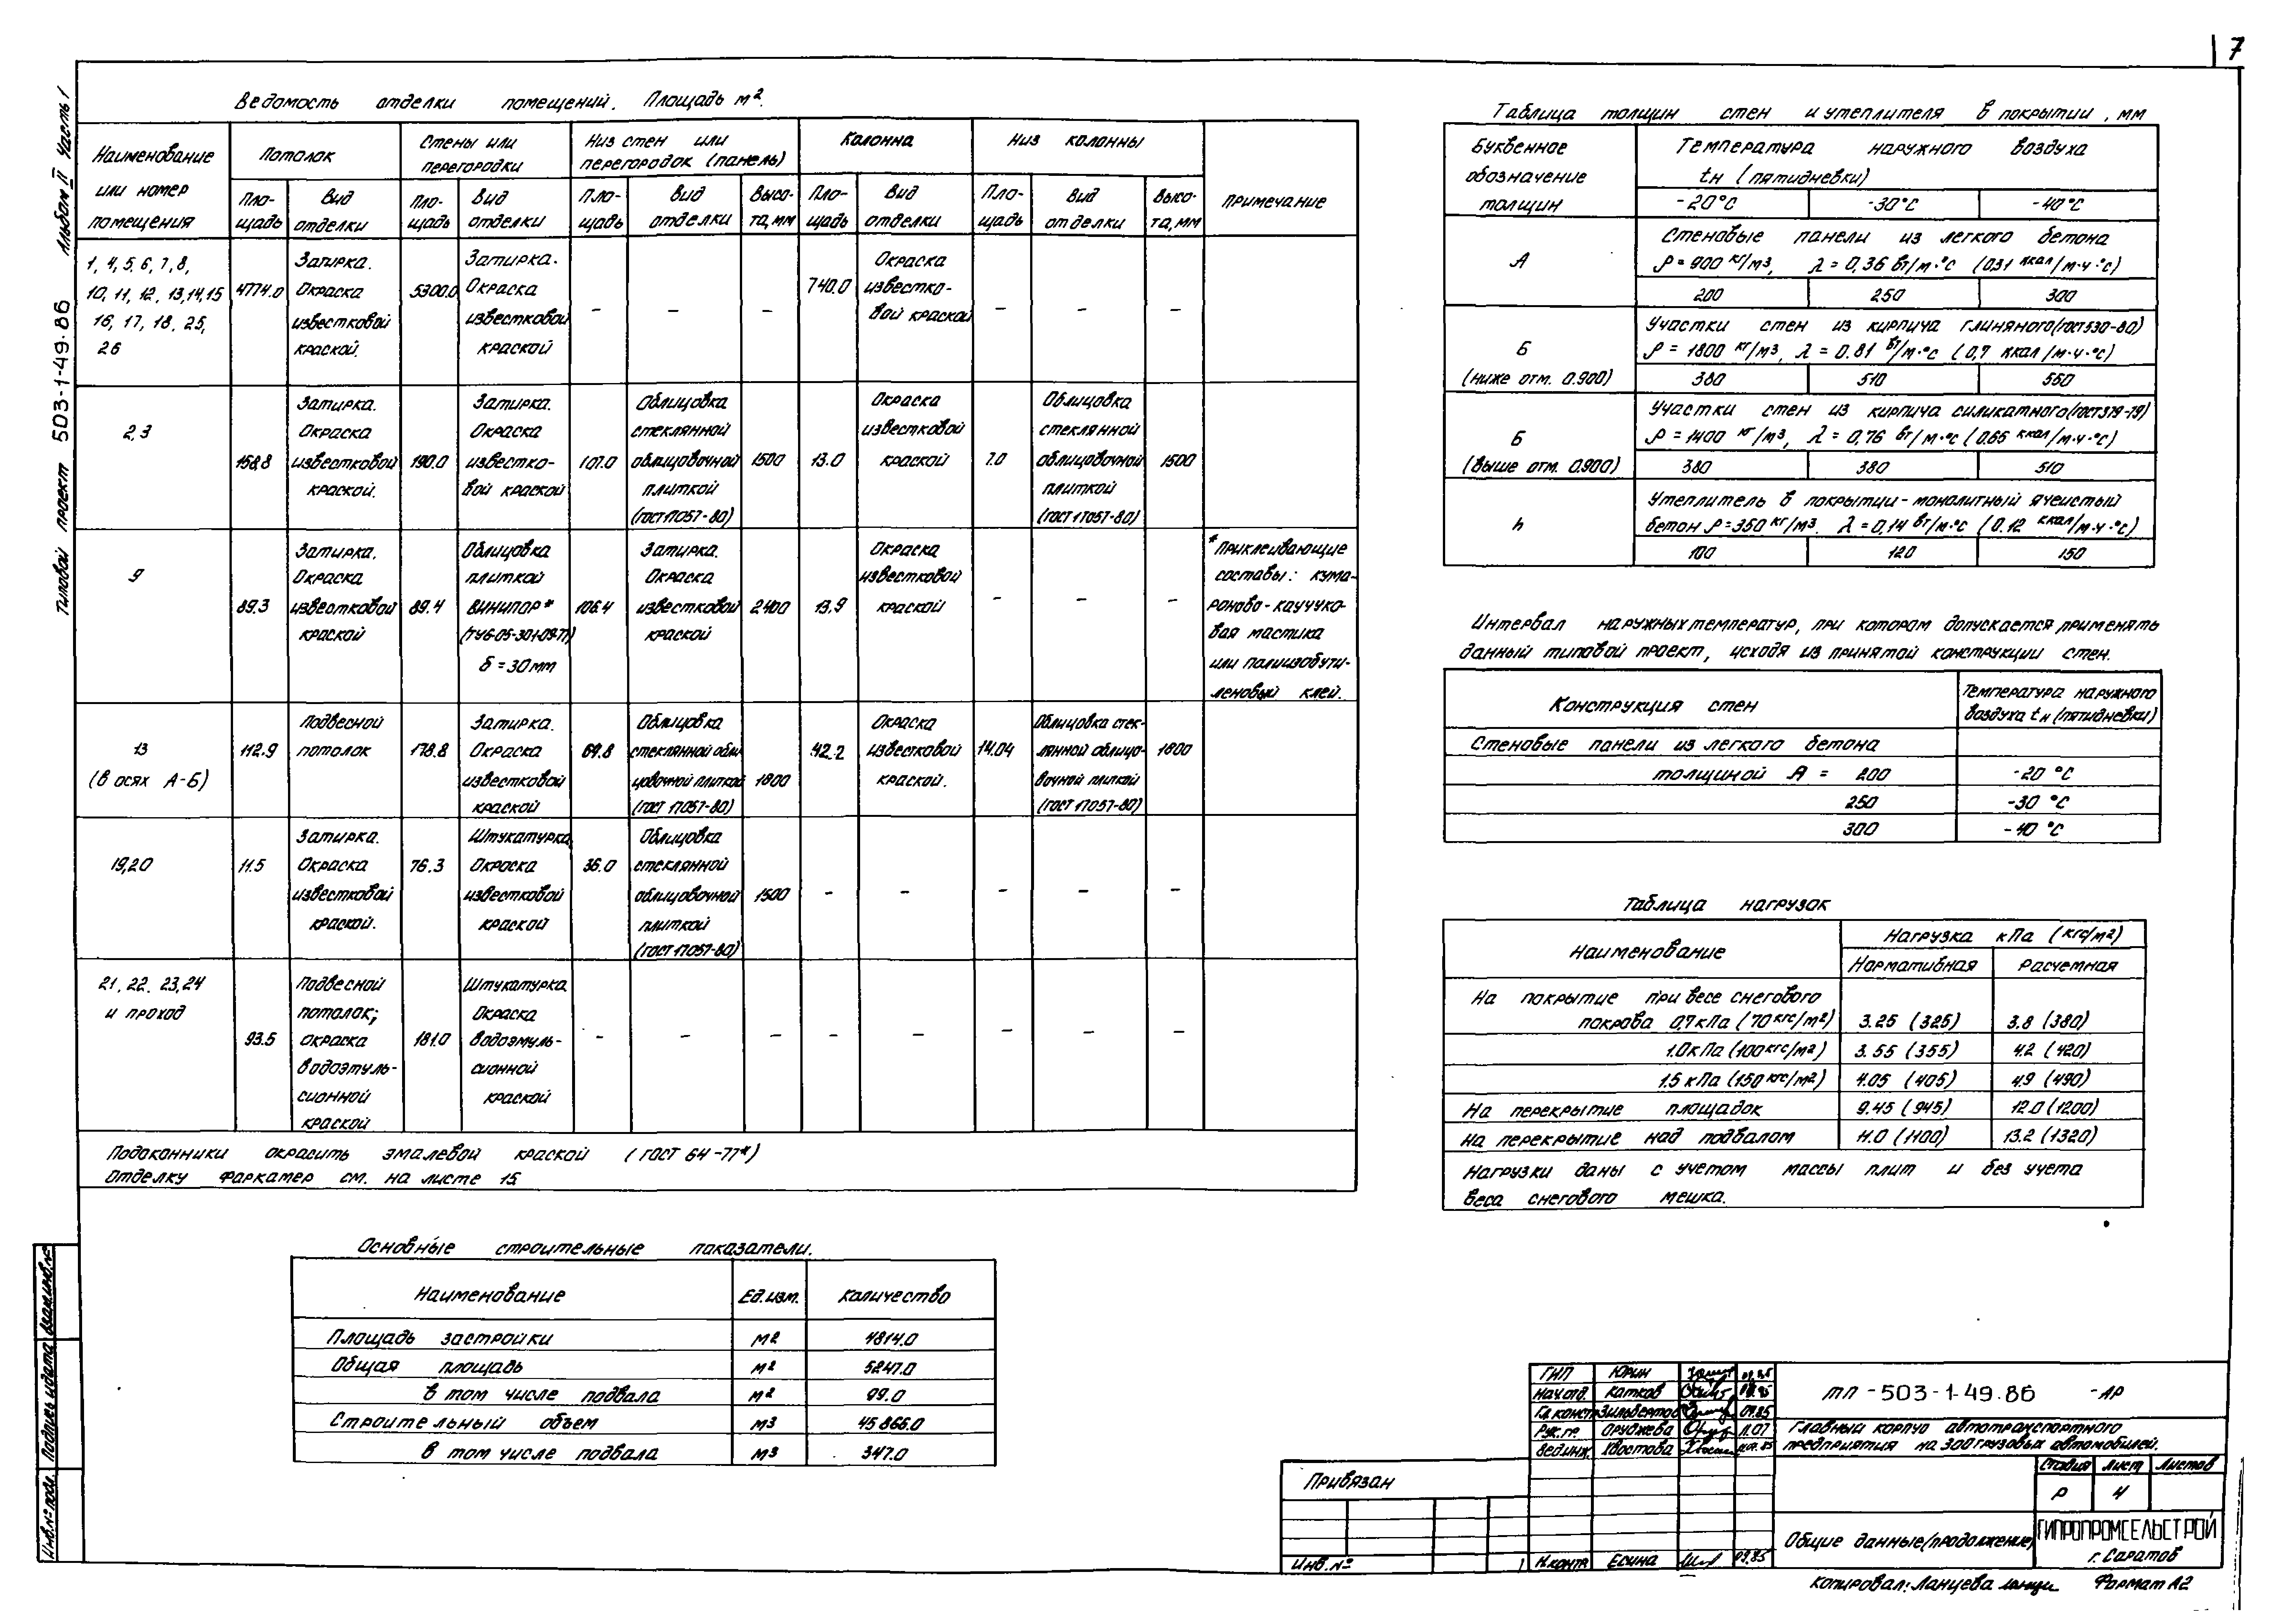 7
Типовой проект 503-1-49.86 Альбом II Часть 1
Ведомость отделки помещений. Площадь м².
Наименование или номер помещения
Потолок
Стены или перегородки
Низ стен или перегородок (панель)
Колонна
Низ колонны
Примечание
Площадь Вид отделки Площадь Вид отделки Площадь Вид отделки Высота, мм Площадь Вид отделки Площадь Вид отделки Высота, мм
1, 4, 5, 6, 7, 8,
10, 11, 12, 13, 14, 15
16, 17, 18, 25,
26
4774.0
Затирка. Окраска известковой краской.
5300.0
Затирка. Окраска известковой краской
- - -
740.0
Окраска известковой краской
- - -
2,3
158.8
Затирка. Окраска известковой краской.
190.0
Затирка. Окраска известковой краской
107.0
Облицовка стеклянной облицовочной плиткой (ГОСТ 17057-80)
1500
13.0
Окраска известковой краской
7.0
Облицовка стеклянной облицовочной плиткой (ГОСТ 17057-80)
1500
9
89.3
Затирка. Окраска известковой краской
89.4
Облицовка плиткой винипор* (ТУ6-05-301-09-77) δ = 30мм
106.4
Затирка. Окраска известковой краской
2400
13.9
Окраска известковой краской
- - -
* Приклеивающие составы: кумароново-каучуковая мастика или полиизобутиленовый клей.
13
(в осях А-Б)
112.9
Подвесной потолок
178.8
Затирка. Окраска известковой краской
69.8
Облицовка стеклянной облицовочной плиткой (ГОСТ 17057-80)
1800
42.2
Окраска известковой краской.
14.04
Облицовка стеклянной облицовочной плиткой (ГОСТ 17057-80)
1800
19,20
11.5
Затирка. Окраска известковой краской.
76.3
Штукатурка Окраска известковой краской
36.0
Облицовка стеклянной облицовочной плиткой (ГОСТ 17057-80)
1500
- - - - -
21, 22, 23, 24
и проход
93.5
Подвесной потолок; окраска водоэмульсионной краской
181.0
Штукатурка Окраска водоэмульсионной краской
- - - - - - - -
Подоконники окрасить эмалевой краской (ГОСТ 64-77*)
Отделку форкамер см. на листе 15
Основные строительные показатели.
Наименование Ед.изм. Количество
Площадь застройки м2 4814.0
Общая площадь м2 5247.0
в том числе подвала м2 99.0
Строительный объем м3 45866.0
в том числе подвала м3 347.0
Таблица толщин стен и утеплителя в покрытии, мм
Буквенное обозначение толщин
Температура наружного воздуха
tн (пятидневки)
-20°С -30°С -40°С
А
Стеновые панели из легкого бетона
ρ = 900 кг/м3, λ = 0,36 вт/м·°с (0.31 ккал/м·ч·°с)
200 250 300
Б
(ниже отм. 0.900)
Участки стен из кирпича глиняного (ГОСТ 530-80)
ρ = 1800 кг/м3, λ = 0.81 вт/м·°с (0,7 ккал/м·ч·°с)
380 510 550
Б
(выше отм. 0.900)
Участки стен из кирпича силикатного (ГОСТ 379-79)
ρ = 1400 кг/м3, λ = 0,76 вт/м·°с (0.65 ккал/м·ч·°с)
380 380 510
h
Утеплитель в покрытии - монолитный ячеистый
бетон ρ = 350 кг/м3. λ = 0,14 вт/м·°с (0.12 ккал/м·ч·°с)
100 120 150
Интервал наружных температур, при котором допускается применять
данный типовой проект, исходя из принятой конструкции стен.
Конструкция стен
Температура наружного воздуха tн (пятидневки)
Стеновые панели из легкого бетона
толщиной А = 200 -20 °С
250 -30 °С
300 -40 °С
Таблица нагрузок
Наименование
Нагрузка кПа (кгс/м2)
Нормативная Расчетная
На покрытие при весе снегового
покрова 0,7 кПа (70 кгс/м2) 3.25 (325) 3.8 (380)
1.0 кПа (100 кгс/м2) 3.55 (355) 4.2 (420)
1.5 кПа (150 кгс/м2) 4.05 (405) 4.9 (490)
На перекрытие площадок 9.45 (945) 12.0 (1200)
На перекрытие над подвалом 11.0 (1100) 13.2 (1320)
Нагрузки даны с учетом массы плит и без учета
веса снегового мешка.
Инв.№ подл. Подпись и дата Взам.инв.№
Привязан
Инв.№
ГИП Юрин
Нач.отд. Катков
Гл.констр. Зильвертов 09.85
Рук.гр. Оруджева 11.07
Вед.инж. Хвостова
Н.контр. Есина 09.85
ТП-503-1-49.86 -АР
Главный корпус автотранспортного
предприятия на 300 грузовых автомобилей.
Стадия Лист Листов
Р 4
Общие данные (продолжение)
ГИПРОПРОМСЕЛЬСТРОЙ
г. Саратов
Копировал: Ланцева Формат А2